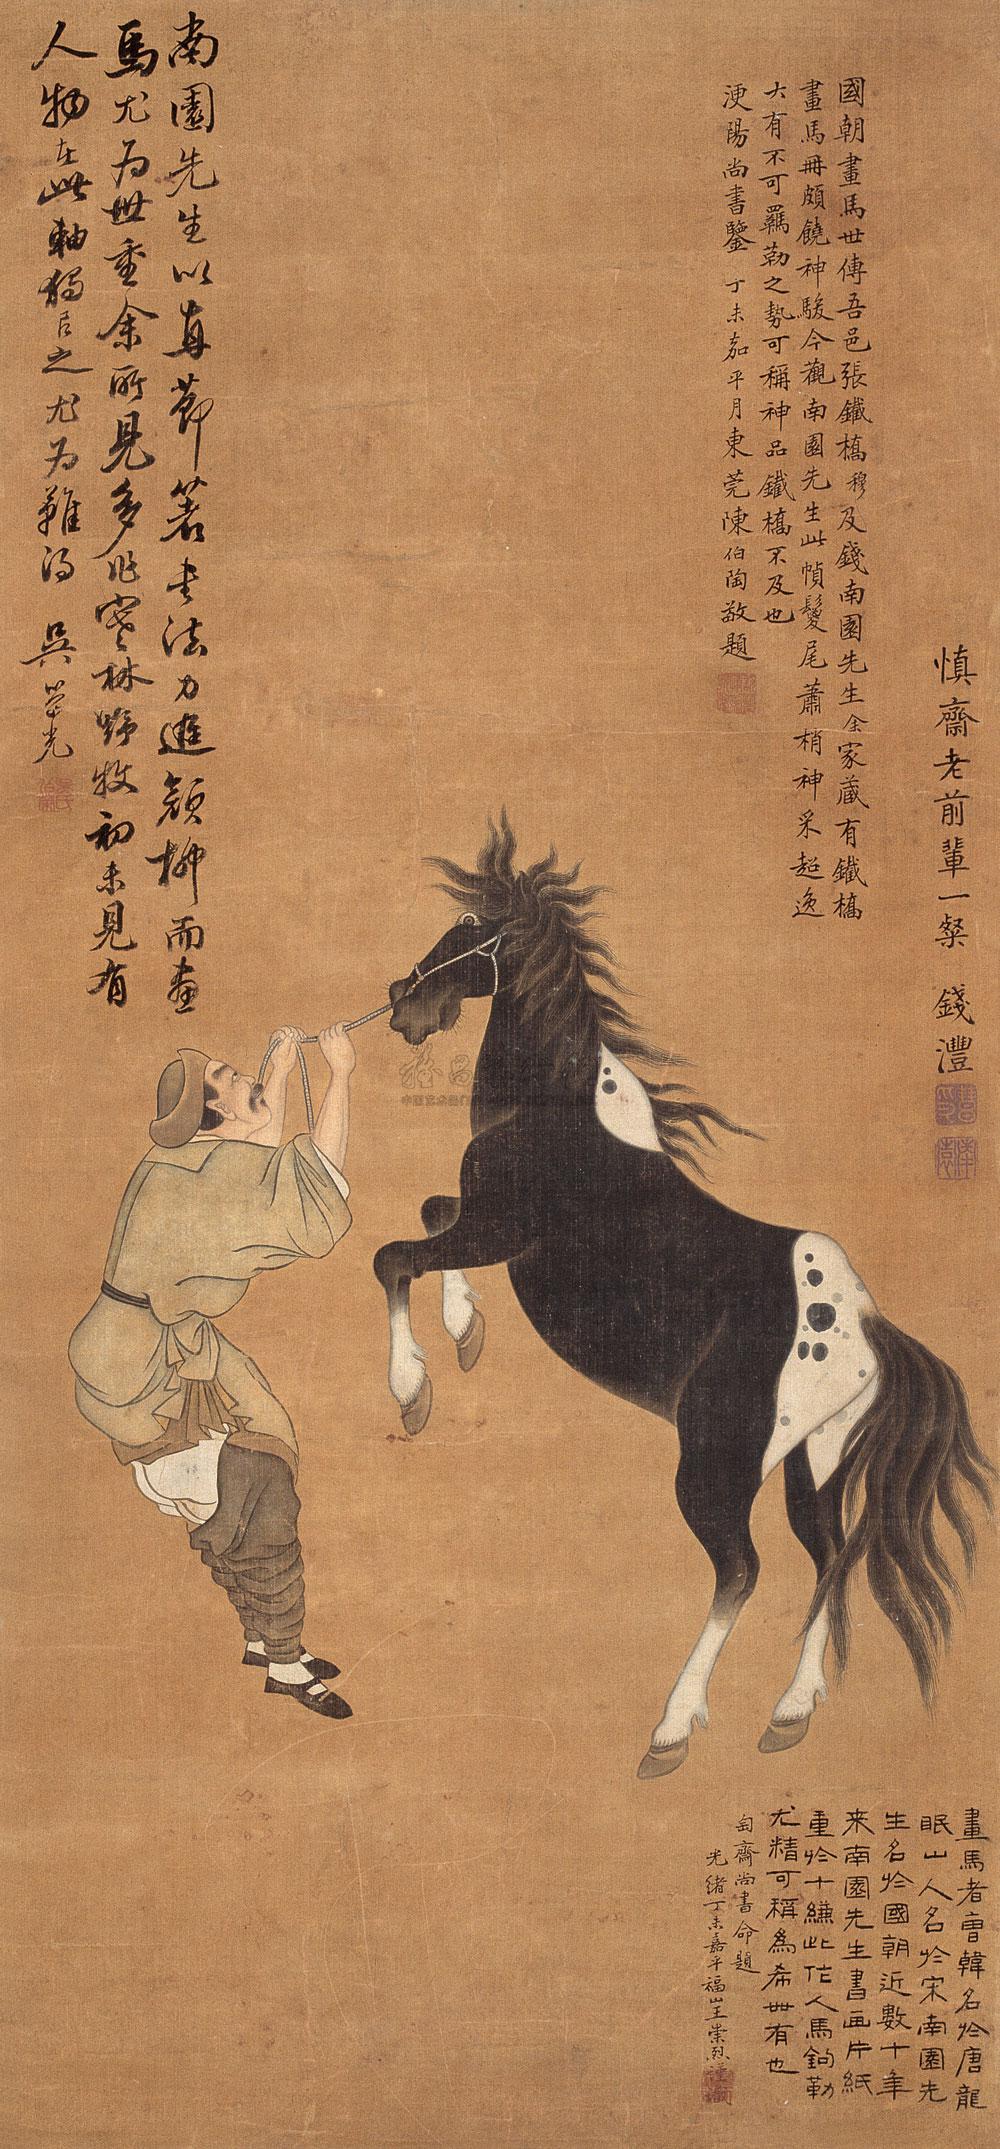 慎齋老前輩一粲 錢灃
國朝畫馬世傳吾邑張鐵橋穆及錢南園先生余家藏有鐵橋
畫馬冊頗饒神駿今觀南園先生此幀鬉尾蕭梢神采超逸
大有不可羈勒之勢可稱神品鐵橋不及也
浭陽尚書鑒 丁未嘉平月東莞陳伯陶敬題
南園先生以直節著書法力追顏柳而畫
馬尤為世重余所見多作寒林野牧初未見有
人物在此軸獨有之尤为難得 吳榮光
畫馬者曹韓名於唐龍
眠山人名於宋南園先
生名於國朝近數十年
来南園先生書畫片紙
重於十縑此作人馬鉤勒
尤精可稱為希世有也
匋齋尚書命題
光緒丁未嘉平福山王崇烈謹